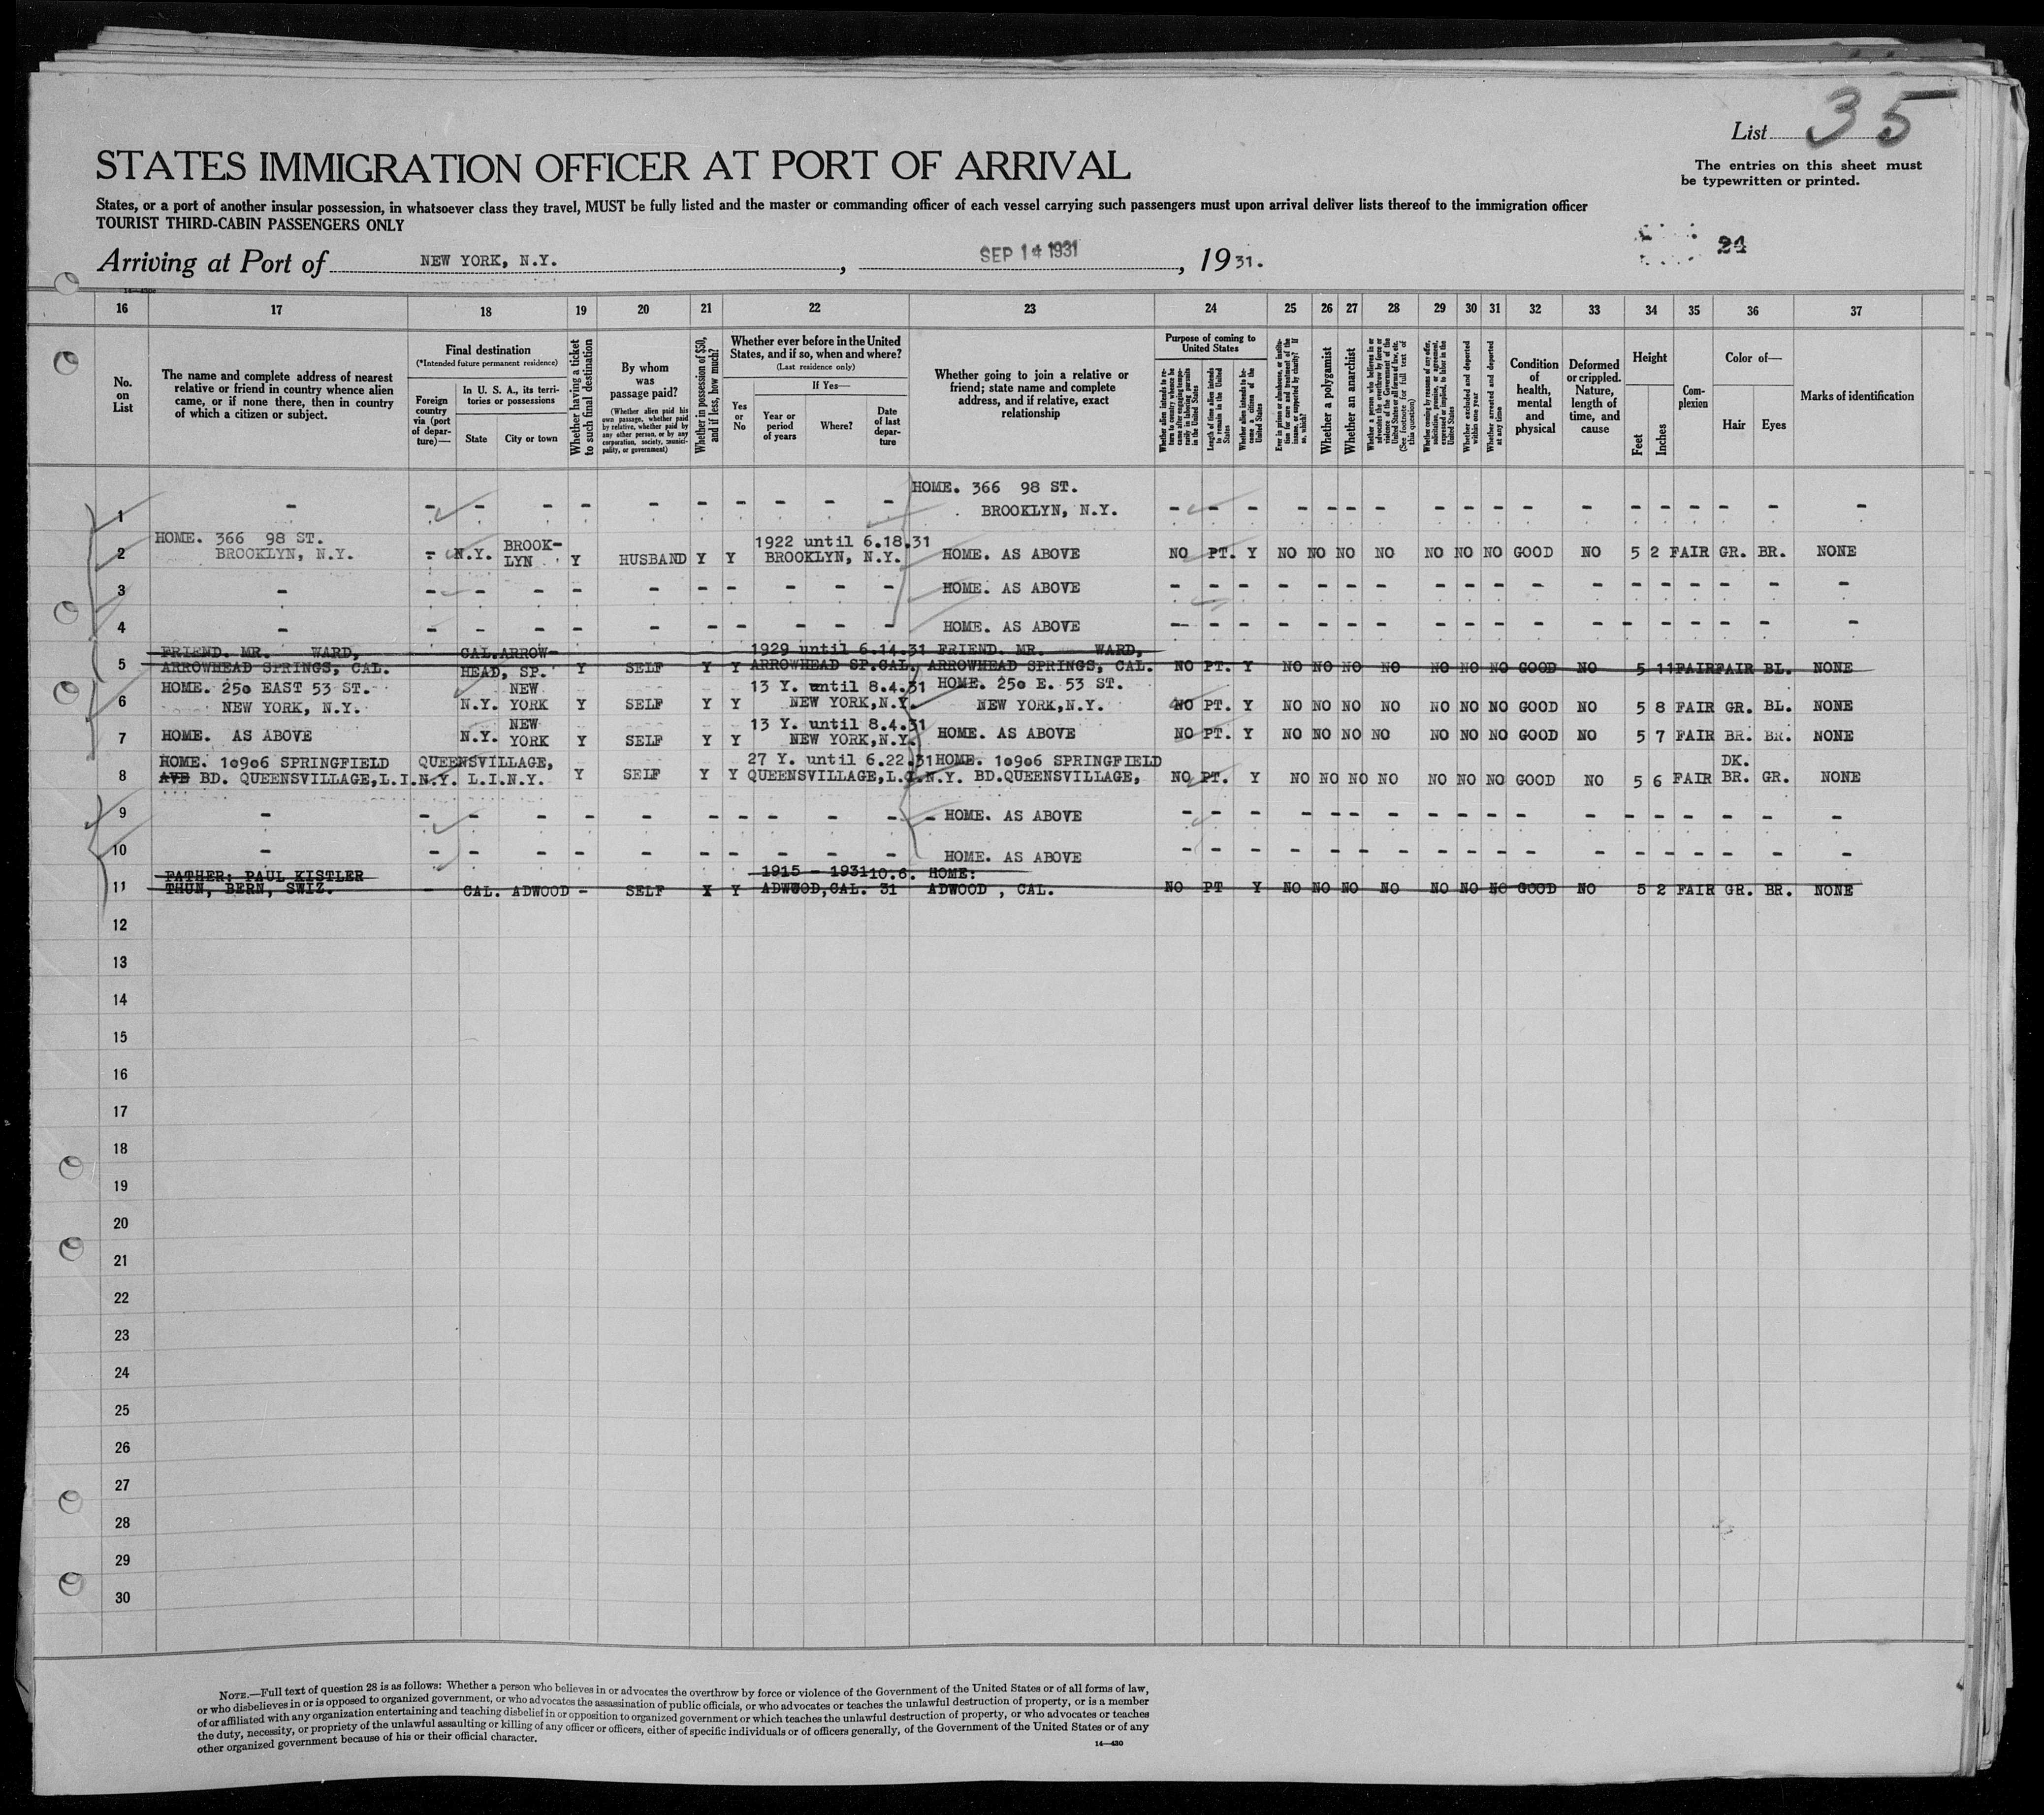 List 35
STATES IMMIGRATION OFFICER AT PORT OF ARRIVAL
The entries on this sheet must
be typewritten or printed.
States, or a port of another insular possession, in whatsoever class they travel, MUST be fully listed and the master or commanding officer of each vessel carrying such passengers must upon arrival deliver lists thereof to the immigration officer
TOURIST THIRD-CABIN PASSENGERS ONLY
24
Arriving at Port of NEW YORK, N.Y. , SEP 14 1931 , 1931.
16 17 18 19 20 21 22 23 24 25 26 27 28 29 30 31 32 33 34 35 36 37
No.
on
List
The name and complete address of nearest
relative or friend in country whence alien
came, or if none there, then in country
of which a citizen or subject.
Final destination
(*Intended future permanent residence)
Foreign
country
via (port
of depar-
ture)—
In U. S. A., its terri-
tories or possessions
State
City or town
Whether having a ticket
to such final destination
By whom
was
passage paid?
(Whether alien paid his
own passage, whether paid
by relative, whether paid by
any other person, or by any
corporation, society, munici-
pality, or government)
Whether in possession of $50,
and if less, how much?
Whether ever before in the United
States, and if so, when and where?
(Last residence only)
Yes
or
No
If Yes—
Year or
period
of years
Where?
Date
of last
depar-
ture
Whether going to join a relative or
friend; state name and complete
address, and if relative, exact
relationship
Purpose of coming to
United States
Whether alien intends to re-
turn to country whence he
came after engaging tempo-
rarily in laboring pursuits
in the United States
Length of time alien intends
to remain in the United
States
Whether alien intends to be-
come a citizen of the
United States
Ever in prison or almshouse, or institu-
tion for care and treatment of the
insane, or supported by charity? If
so, which?
Whether a polygamist
Whether an anarchist
Whether a person who believes in or
advocates the overthrow by force or
violence of the Government of the
United States or all forms of law, etc.
(See footnote for full text of
this question)
Whether coming by reasons of any offer,
solicitation, promise, or agreement,
expressed or implied, to labor in the
United States
Whether excluded and deported
within one year
Whether arrested and deported
at any time
Condition
of
health,
mental
and
physical
Deformed
or crippled.
Nature,
length of
time, and
cause
Height
Feet
Inches
Com-
plexion
Color of—
Hair
Eyes
Marks of identification
HOME. 366 98 ST.
1 - - - - - - - - - - - BROOKLYN, N.Y. - - - - - - - - - - - - - - - - - -
HOME. 366 98 ST. BROOK- 1922 until 6.18.31
2 BROOKLYN, N.Y. - N.Y. LYN Y HUSBAND Y Y BROOKLYN, N.Y. HOME. AS ABOVE NO PT. Y NO NO NO NO NO NO NO GOOD NO 5 2 FAIR GR. BR. NONE
3 - - - - - - - - - - - HOME. AS ABOVE - - - - - - - - - - - - - - - - - -
4 - - - - - - - - - - - HOME. AS ABOVE - - - - - - - - - - - - - - - - - -
FRIEND. MR. WARD, CAL. ARROW- 1929 until 6.14.31 FRIEND. MR. WARD,
5 ARROWHEAD SPRINGS, CAL. HEAD, SP. Y SELF Y Y ARROWHEAD SP.CAL. ARROWHEAD SPRINGS, CAL. NO PT. Y NO NO NO NO NO NO NO GOOD NO 5 11 FAIR FAIR BL. NONE
HOME. 250 EAST 53 ST. NEW 13 Y. until 8.4.31 HOME. 250 E. 53 ST.
6 NEW YORK, N.Y. N.Y. YORK Y SELF Y Y NEW YORK,N.Y. NEW YORK,N.Y. NO PT. Y NO NO NO NO NO NO NO GOOD NO 5 8 FAIR GR. BL. NONE
NEW 13 Y. until 8.4.31
7 HOME. AS ABOVE N.Y. YORK Y SELF Y Y NEW YORK,N.Y. HOME. AS ABOVE NO PT. Y NO NO NO NO NO NO NO GOOD NO 5 7 FAIR BR. BR. NONE
HOME. 10906 SPRINGFIELD QUEENSVILLAGE, 27 Y. until 6.22.31 HOME. 10906 SPRINGFIELD DK.
8 AVE BD. QUEENSVILLAGE,L.I.N.Y. L.I.N.Y. Y SELF Y Y QUEENSVILLAGE,L.I.N.Y. BD.QUEENSVILLAGE, NO PT. Y NO NO NO NO NO NO NO GOOD NO 5 6 FAIR BR. GR. NONE
9 - - - - - - - - - - - HOME. AS ABOVE - - - - - - - - - - - - - - - - - -
10 - - - - - - - - - - - HOME. AS ABOVE - - - - - - - - - - - - - - - - - -
FATHER: PAUL KISTLER 1915 - 1931 10.6. HOME:
11 THUN, BERN, SWIZ. - CAL. ADWOOD - SELF X Y ADWOOD,CAL. 31 ADWOOD , CAL. NO PT Y NO NO NO NO NO NO NO GOOD NO 5 2 FAIR GR. BR. NONE
12
13
14
15
16
17
18
19
20
21
22
23
24
25
26
27
28
29
30
NOTE.—Full text of question 28 is as follows: Whether a person who believes in or advocates the overthrow by force or violence of the Government of the United States or of all forms of law,
or who disbelieves in or is opposed to organized government, or who advocates the assassination of public officials, or who advocates or teaches the unlawful destruction of property, or is a member
of or affiliated with any organization entertaining and teaching disbelief in or opposition to organized government or which teaches the unlawful destruction of property, or who advocates or teaches
the duty, necessity, or propriety of the unlawful assaulting or killing of any officer or officers, either of specific individuals or of officers generally, of the Government of the United States or of any
other organized government because of his or their official character.
14—430